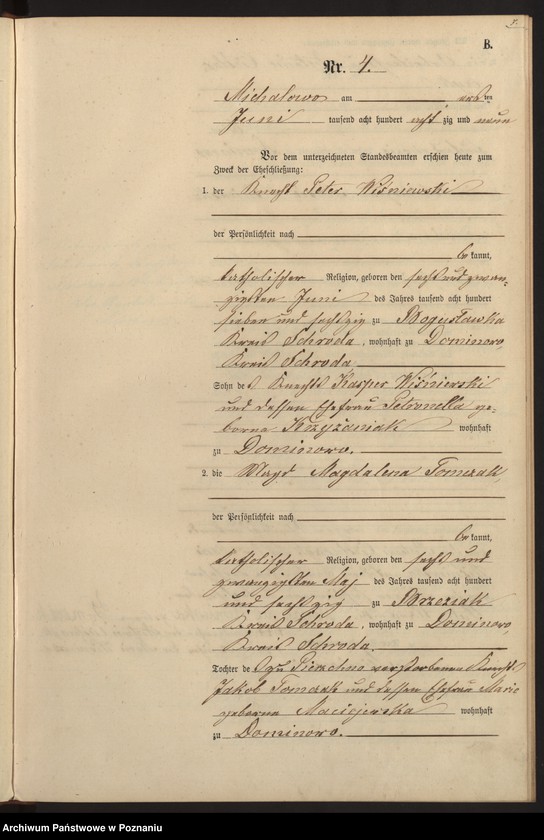 B.
Nr. 4.
Michalowo am ersten
Juni tausend acht hundert achtzig und neun
Vor dem unterzeichneten Standesbeamten erschien heute zum
Zweck der Eheschließung:
1. der Knecht Peter Wiśniewski
der Persönlichkeit nach
be kannt,
katholischer Religion, geboren den sechs und zwan-
zigsten Juni des Jahres tausend acht hundert
sieben und sechzig zu Bogusławka
Kreis Schroda, wohnhaft zu Dominowo,
Kreis Schroda
Sohn des Knechts Kasper Wiśniewski
und dessen Ehefrau Petronella ge-
borne Krzyżaniak wohnhaft
zu Dominowo.
2. die Magd Magdalena Tomczak,
der Persönlichkeit nach
be kannt,
katholischer Religion, geboren den sechs und
zwanzigsten Maj des Jahres tausend acht hundert
und sechzig zu Brzeziak
Kreis Schroda, wohnhaft zu Dominowo,
Kreis Schroda.
Tochter des zu verstorbenen Knechts
Jakob Tomczak und dessen Ehefrau Marie
geborne Maciejewska wohnhaft
zu Dominowo.
Archiwum Państwowe w Poznaniu